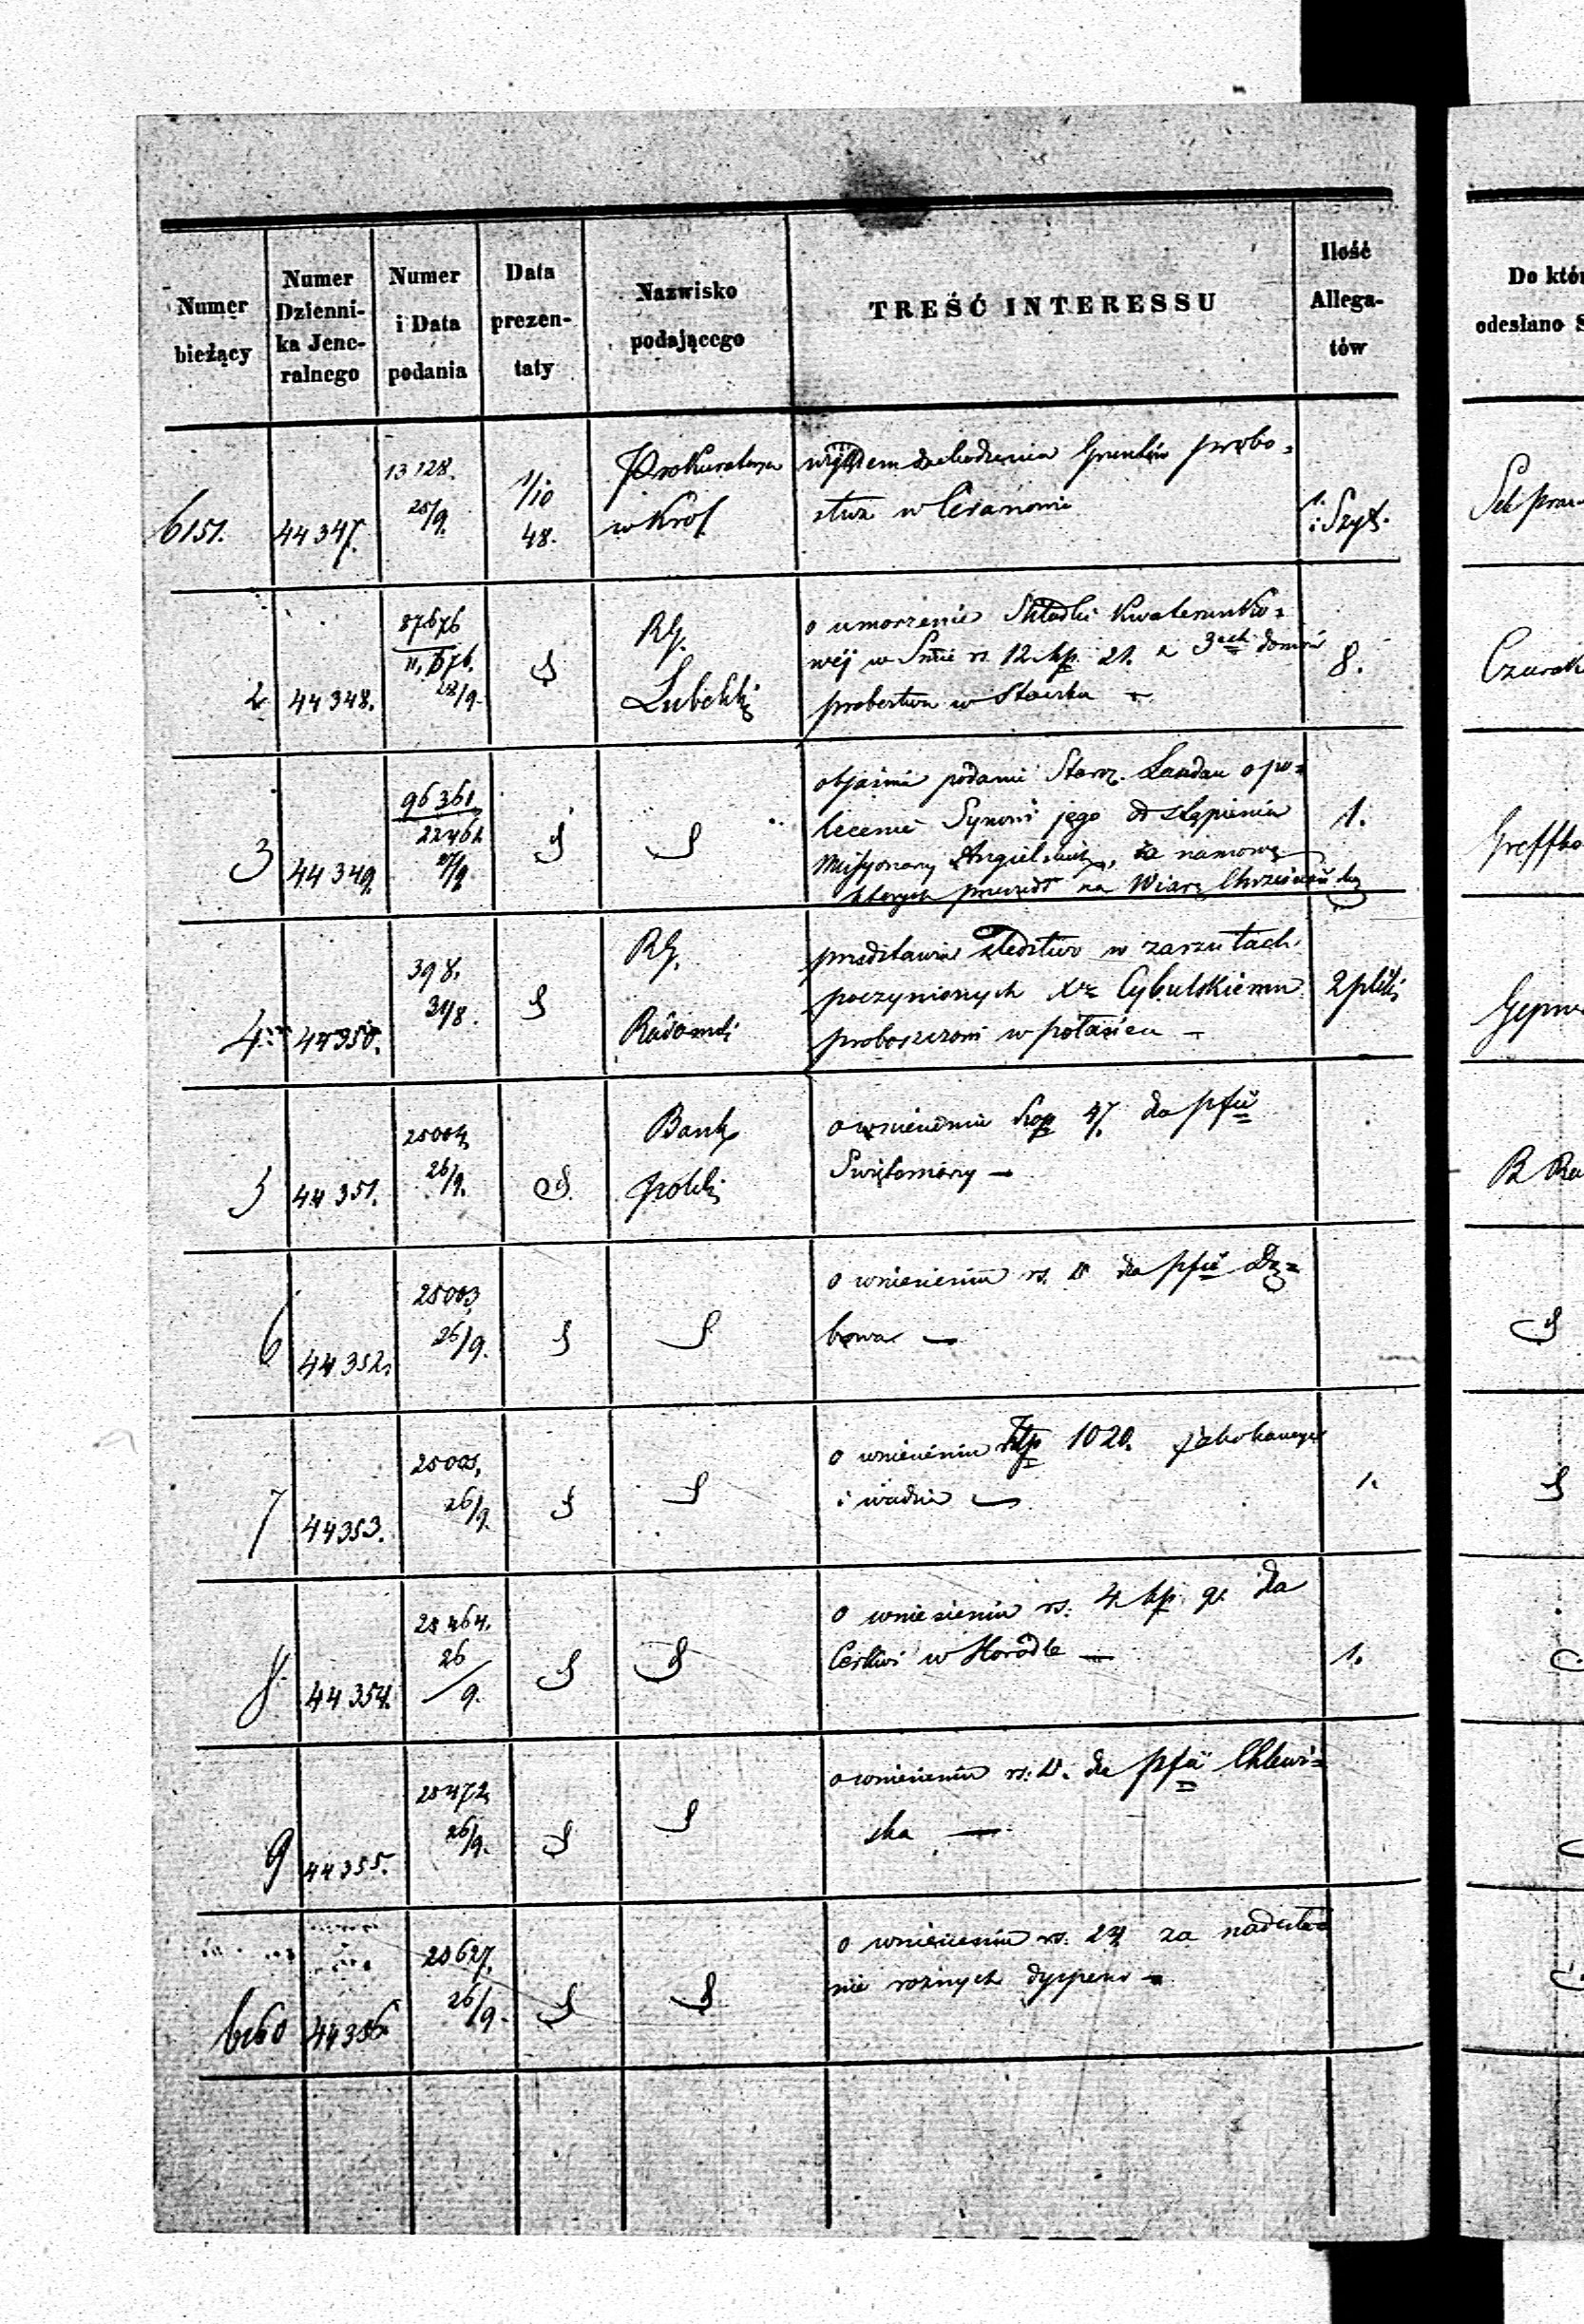 Numer bieżący
Numer Dzienni-
ka Jene-
ralnego
Numer i Data podania
Data prezen-
taty
Nazwisko podającego
TREŚĆ INTERESSU
Ilość Allega-
tów
Do któr
odesłano S
6151. 44347. 13128. 25/9. 1/10 48.
Prokuratorya
w Król.
względem dochodzenia Gruntów probo-
stwa w Ceranowie
1. i Szyt.
2 44348. 87676 28/9.
RG.
Lubelski
o umorzenie Składki Kwaterunko-
wéj w Smie rs. 12 kp. 21. z 3ech domów
probostwa w
8.
3 44349. 96361 22461 27/9
objaśnia podanie Staroz. Landau o po-
lecenie Synowi jego odstąpienia
Missyonarzy Angielskich, za namową
których przeszedł na Wiarę Chrześciańską
1.
4 44350. 398. 31/8.
RG.
Radomski
przedstawia śledztwo w zarzutach
poczynionych Xdz Cybulskiemu
proboszczowi w
2 pliki
5 44351. 25004 26/9.
Bank
polski
o wniesieniu kop 47. dla pfii
Świętomarz —
6 44352. 25003 26/9.
o wniesieniu rs. dla pfii Dę-
bowa —
7 44353. 26/9.
o wniesieniu Złp 1020.
i wadia —
1.
8. 44354. 25464. 26/9.
o wniesieniu rs. 4 kp. 9. dla
Cerkwi w Horodle —
1.
9 44355. 25472 26/9.
o wniesieniu rs. dla pfii Chlewi-
ska —
6160 44356 25627. 26/9.
o wniesieniu rs. 24 za nadesła-
nie rożnych dyspens —